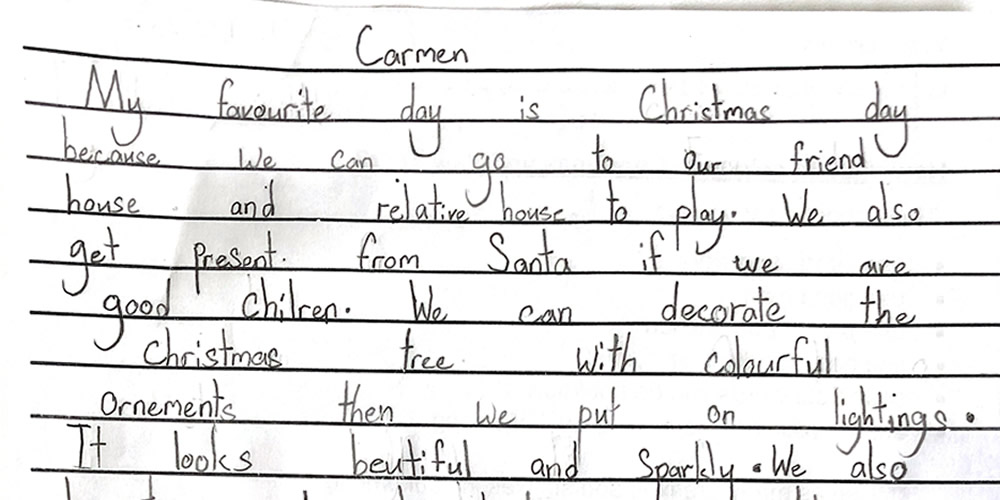 Carmen
My favourite day is Christmas day
because we can go to our friend
house and relative house to play. We also
get present. from Santa if we are
good chilren. We can decorate the
Christmas tree with colourful
ornements then we put on lightings.
It looks beutiful and sparkly. We also